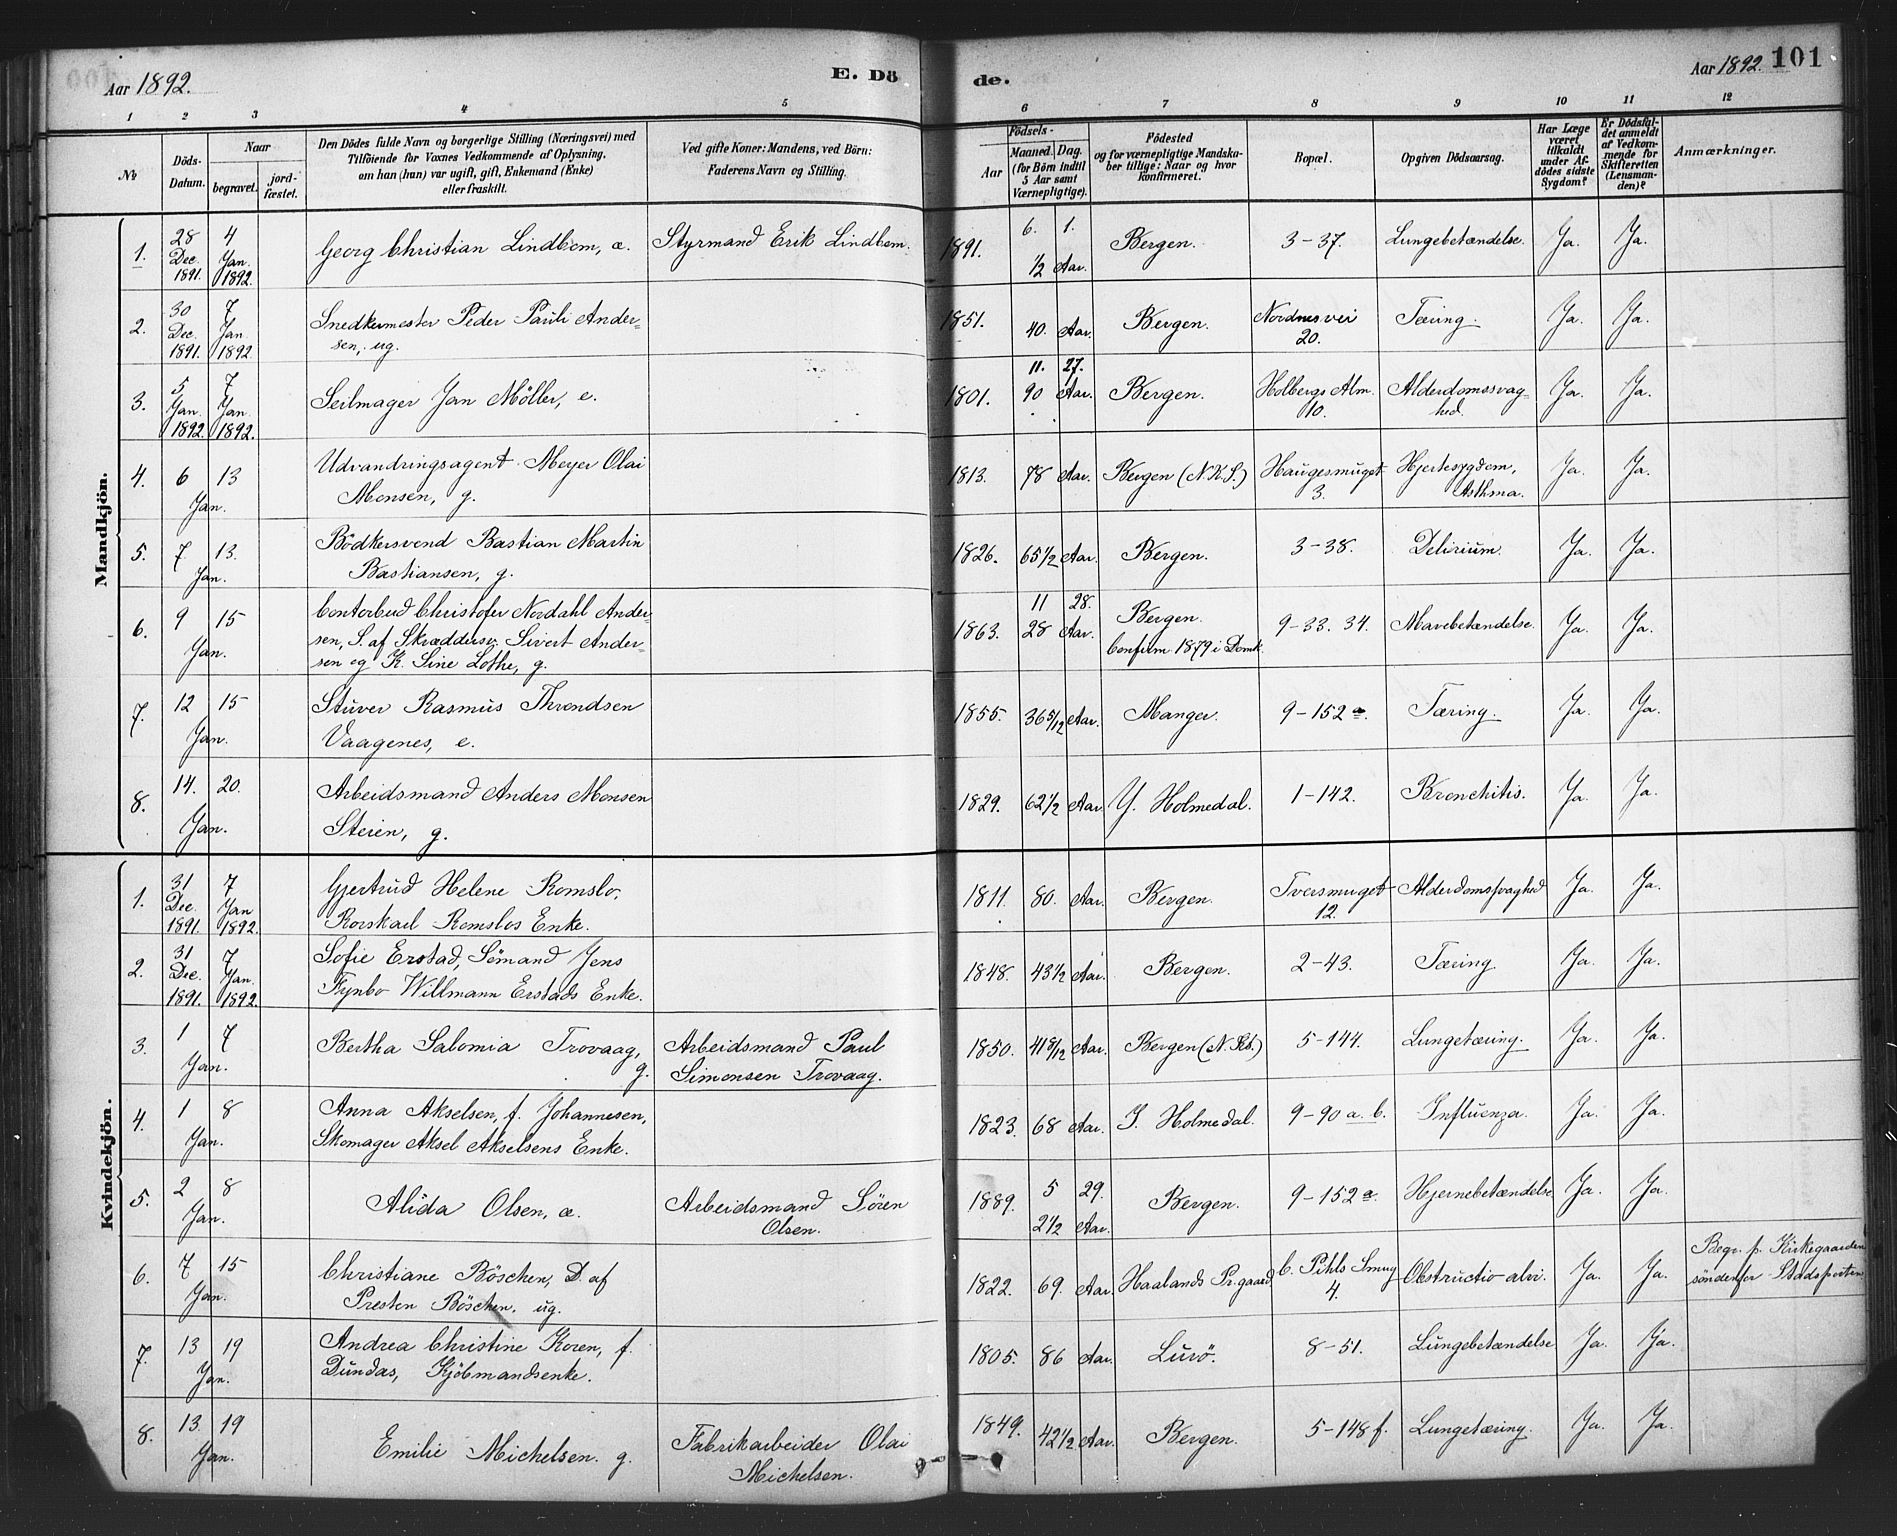 Aar 1892.
E. Dö
de.
Aar 1892. 101
1 2 3 4 5 6 7 8 9 10 11 12
No
Döds-
Datum.
Naar
begravet.
jord-
fæstet.
Den Dödes fulde Navn og borgerlige Stilling (Næringsvei) med
Tilföiende for Voxnes Vedkommende af Oplysning,
om han (hun) var ugift, gift, Enkemand (Enke)
eller fraskilt.
Ved gifte Koner: Mandens, ved Börn:
Faderens Navn og Stilling.
Födsels-
Aar
Maaned. Dag.
(for Börn indtil
5 Aar samt
Værnepligtige).
Födested
og for værnepligtige Mandska-
ber tillige: Naar og hvor
konfirmeret.
Bopæl.
Opgiven Dödsaarsag.
Har Læge
været
tilkaldt
under Af-
dödes sidste
Sygdom?
Er Dödsfal-
det anmeldt
af Vedkom-
mende for
Skifteretten
(Lensman-
den)?
Anmærkninger.
Mandkjön.
1. 28 Dec. 1891. 4 Jan. 1892. Georg Christian Lindbom, æ. Styrmand Erik Lindbom. 1891. 6. 1. 1/2 Aar. Bergen. 3-37. Lungebetændelse. Ja. Ja.
2. 30 Dec. 1891. 7 Jan. 1892 Snedkermester Peder Pauli Ander-
sen, ug. 1851. 40. Aar. Bergen. Nordnesvei 20. Tæring. Ja. Ja.
3. 5 Jan. 1892. 7 Jan. 1892. Seilmager Jan Möller, e. 1801. 11. 27. 90 Aar. Bergen. Holbergs Alm. 10. Alderdomssvag-
hed. Ja. Ja.
4. 6 13 Jan. Udvandringsagent Meyer Olai
Monsen, g. 1813. 78 Aar. Bergen (N.K.S.) Haugesmuget 3. Hjertesygdom,
Asthma. Ja. Ja.
5. 7 13. Jan. Bödkersvend Bastian Martin
Bastiansen, g. 1826. 65 1/2 Aar. Bergen. 3-38. Delirium. Ja. Ja.
6. 9 15 Jan. Contorbud Christofer Nordahl Ander-
sen, S. af Skræddersv. Sivert Ander-
sen og K. Sine Lothe, g. 1863. 11 28. 28 Aar. Bergen.
Confirm. 1879 i Domk. 9-33. 34. Mavebetændelse. Ja. Ja.
7. 12 15 Jan. Stuver Rasmus Throndsen
Vaagenes, e. 1855. 36 5/12 Aar. Manger. 9-152 a. Tæring. Ja. Ja.
8. 14. 20. Jan. Arbeidsmand Anders Monsen
Steien, g. 1829. 62 1/2 Aar. Y. Holmedal. 1-142. Bronchitis. Ja. Ja.
Kvindekjön.
1. 31 Dec. 1891. 7 Jan 1892. Gjertrud Helene Romslo,
Romslos Enke. 1811. 80. Aar. Bergen. Tversmuget 12. Alderdomssvaghed Ja. Ja.
2. 31 Dec. 1891. 7 Jan. 1892. Sofie Erstad, Sömand Jens
Fynbo Willmann Erstads Enke. 1848. 43 1/2 Aar. Bergen. 2-43. Tæring Ja. Ja.
3. 1 7 Jan. Bertha Salomia Trovaag,
g. Arbeidsmand Paul
Simonsen Trovaag. 1850. 41 8/12 Aar. Bergen 5-144. Lungetæring. Ja. Ja.
4. 1 8 Jan. Anna Akselsen, f. Johannesen,
Skomager Aksel Akselsens Enke. 1823. 68 Aar. I. Holmedal. 9-90 a. b. Influenza. Ja. Ja.
5. 2 8 Jan. Alida Olsen, æ. Arbeidsmand Sören
Olsen. 1889. 5 29. 2 1/2 Aar. Bergen. 9-152 a. Hjernebetændelse Ja. Ja.
6. 7 15 Jan. Christiane Böschen, D. af
Presten Böschen. ug. 1822. 69. Aar. Haalands Pr.gaard C. Pihls Smug 4. Obstructio alvi. Ja. Ja. Begr. p. Kirkegaarden
söndenfor Stadsporten
7. 13 19 Jan. Andrea Christine Koren, f.
Dundas, Kjöbmandsenke. 1805. 86 Aar. Lurö. 8-51. Lungebetændelse Ja. Ja.
8. 13. 19 Jan. Emilie Michelsen. g. Fabrikarbeider Olai
Michelsen. 1849. 42 1/2 Aar. Bergen. 5-148 f. Lungetæring. Ja. Ja.